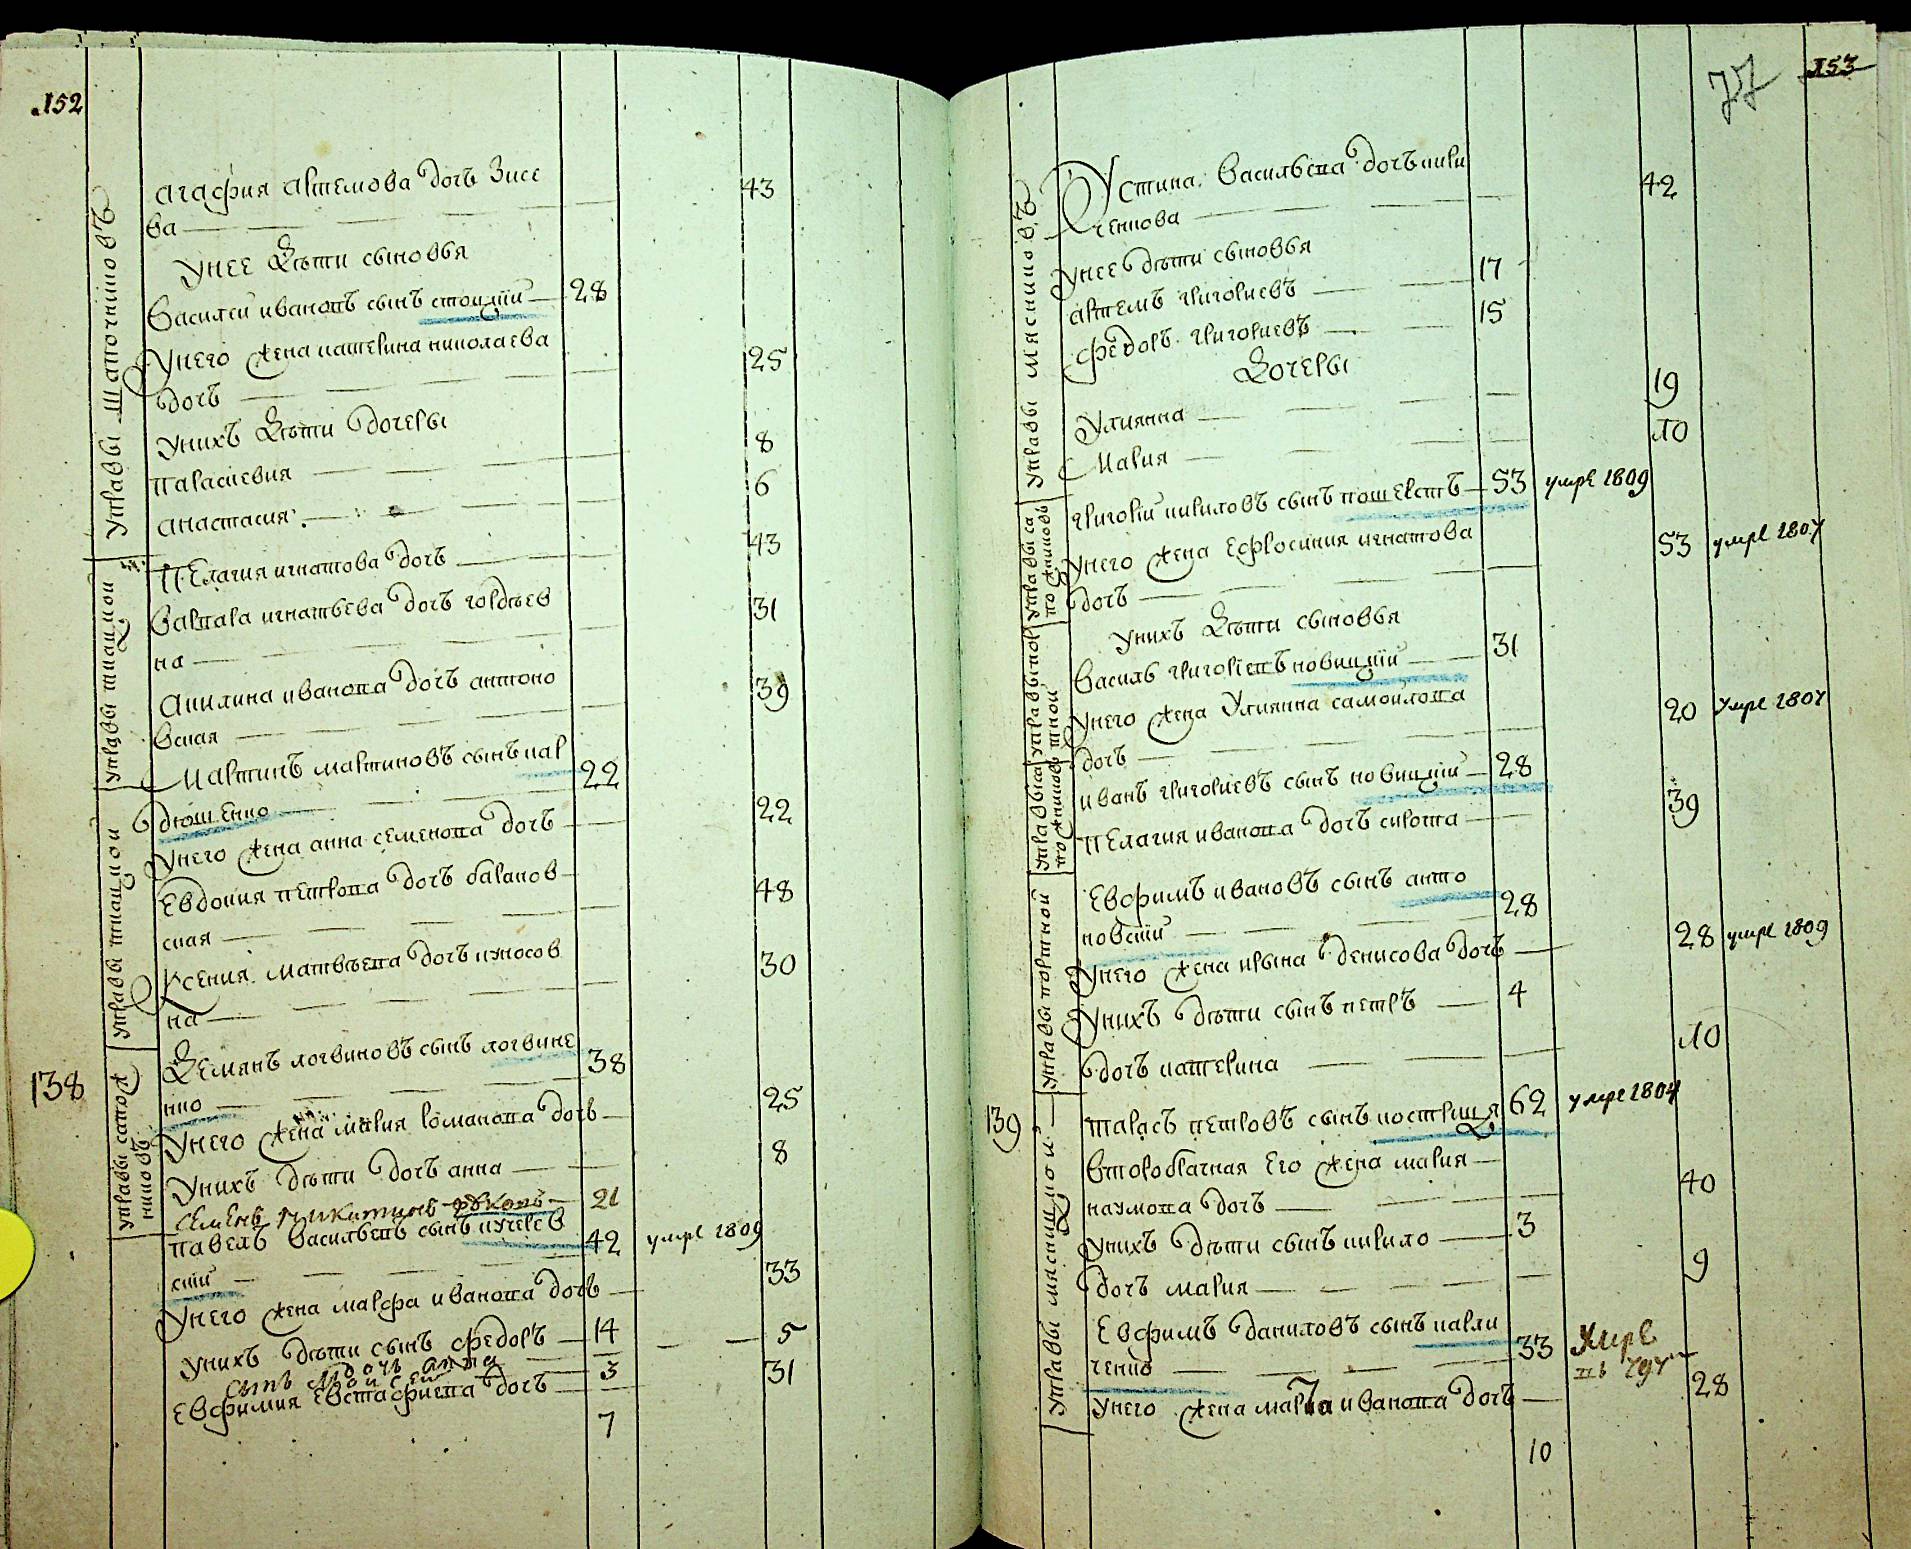 152
Управы Шапочниковъ
Агафия артемова дочъ Зисе
ва
43
Унее Дѣти сыновья
Василей ивановъ сынъ стоцкий
28
Унего жена катерина николаева
дочъ
25
Унихъ Дѣти дочеры
Параскевия
8
анастасия
6
Управы ткацкой
Пелагия игнатова дочъ
43
Варвара игнатьева дочъ гордѣев
на
31
Акилина иванова дочъ антоно
вская
39
Управы ткацкой
Мартинъ мартиновъ сынъ кар
дюшенко
22
Унего жена анна семенова дочъ
22
Евдокия петрова дочъ баранов
ская
48
Ксения матвѣева дочъ кұносов
на
30
138
Управы сапож
никовъ
Демянъ логвиновъ сынъ логвине
нко
38
Унего жена мария романова дочъ
25
Унихъ дѣти дочъ анна
8
Семенъ Никитинъ
21
Павелъ васильевъ сынъ кучеров
ский
42
умре 1809
Унего жена марфа иванова дочъ
33
Унихъ дѣти сынъ федоръ
14
дочъ анна
5
сынъ Моисей
3
Евфимия Евстафиева дочъ
31
7
77
153
Управы мясниковъ
Устина Васильева дочъ кири
ченкова
42
Унее дѣти сыновья
артемъ григориевъ
17
федоръ григориевъ
15
Дочеры
Улиянна
19
Мария
10
Управы са
пожниковъ
Григорий кириловъ сынъ пошерств
53
умре 1809
Унего жена Ефросиния игнатова
дочъ
53
умре 1807
Унихъ Дѣти сыновья
Управы пор
тной
Василь григориевъ новицкий
31
Унего жена Улиянна самойлова
дочъ
20
умре 1807
Управы са
пожниковъ
иванъ григориевъ сынъ новицкий
28
Пелагия иванова дочъ сирота
39
Управы портной
Евфимъ ивановъ сынъ анто
новский
28
Унего жена ирына денисова дочъ
28
умре 1809
Унихъ дѣти сынъ петръ
4
дочъ катерина
10
139
Управы мясницкой
Тарасъ петровъ сынъ кострица
62
умре 1804
второбрачная его жена мария
наумова дочъ
40
Унихъ дѣти сынъ кирило
3
дочъ мария
9
Евфимъ даниловъ сынъ кармы
ченко
33
Умре
въ 797
Унего жена марфа иванова дочъ
28
10